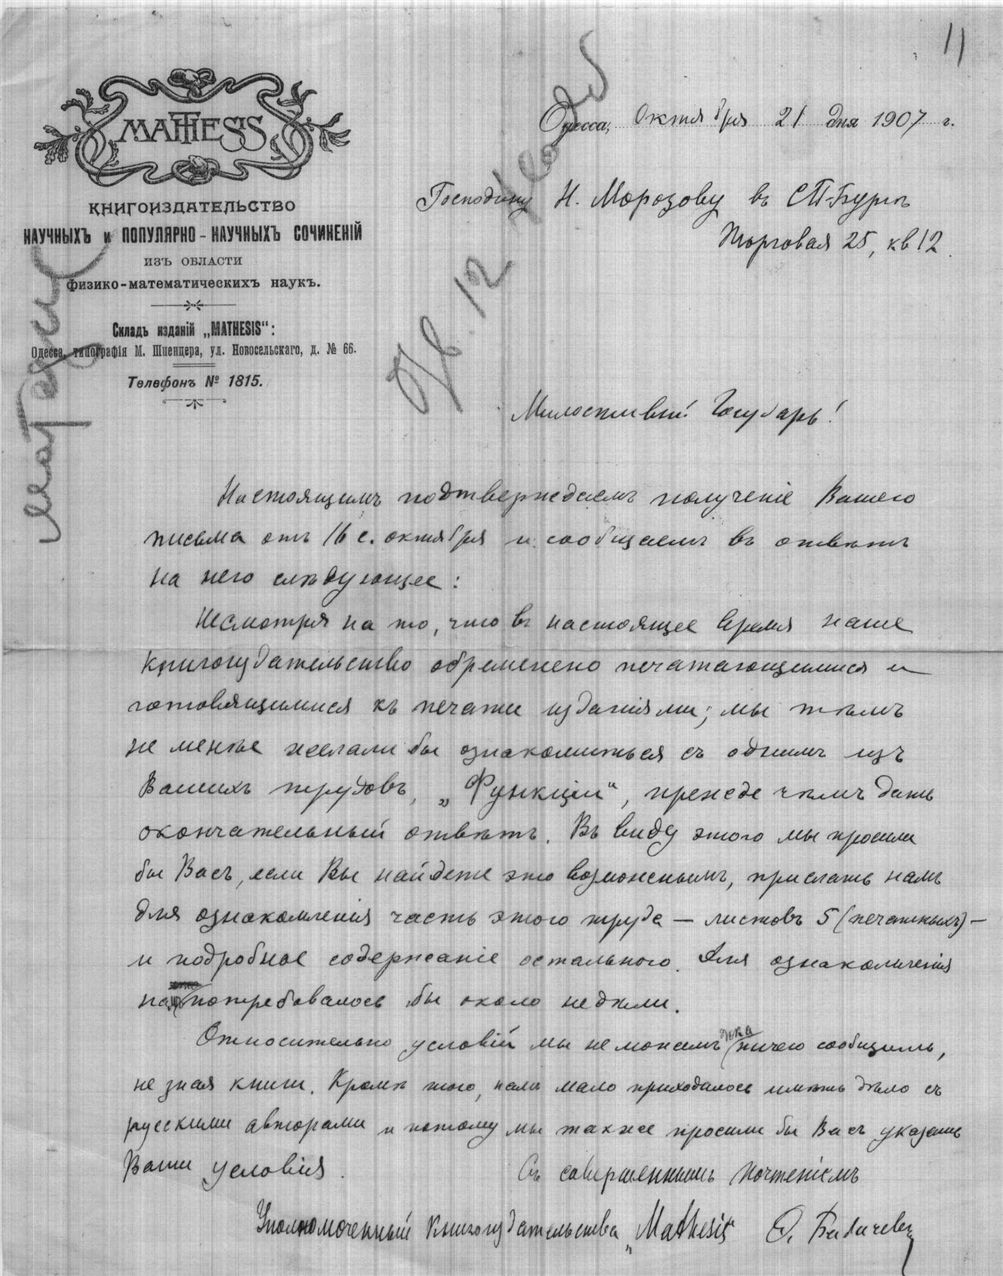 11
MATHESIS
КНИГОИЗДАТЕЛЬСТВО
НАУЧНЫХЪ и ПОПУЛЯРНО-НАУЧНЫХЪ СОЧИНЕНІЙ
ИЗЪ ОБЛАСТИ
физико-математическихъ наукъ.
Складъ изданій „MATHESIS“:
Одесса, типографія М. Шпенцера, ул. Новосельскаго, д. № 66.
Телефонъ № 1815.
Одесса, октября 21 дня 1907 г.
Господину Н. Морозову въ СТ-Бургѣ
Торговая 25, кв 12.
Матезис
12
Милостивый Государь!
Настоящимъ подтверждаемъ полученіе Вашего
письма отъ 16 с. октября и сообщаемъ въ отвѣтъ
на него слѣдующее:
Несмотря на то, что въ настоящее время наше
книгоиздательство обременено печатающимися и
готовящимися къ печати изданіями; мы тѣмъ
не менѣе желали бы ознакомиться съ однимъ изъ
Вашихъ трудовъ, „Функціи“, прежде чѣмъ дать
окончательный отвѣтъ. Въ виду этого мы просили
бы Васъ, если Вы найдете это возможнымъ, прислать намъ
для ознакомленія часть этого труда — листовъ 5 (печатныхъ) —
и подробное содержаніе остального. Для ознакомленія
потребовалось бы около недѣли.
Относительно условій мы не можемъ пока ничего сообщить,
не зная книги. Кромѣ того, намъ мало приходилось имѣть дѣло съ
русскими авторами и потому мы также просили бы Васъ указать
Ваши условія.
Съ совершеннымъ почтеніемъ
Уполномоченный Книгоиздательства „Mathesis“